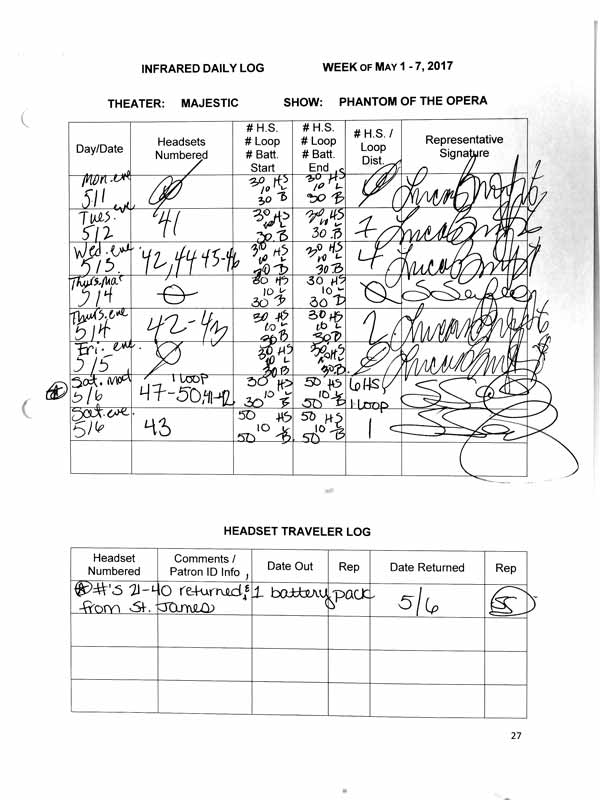 INFRARED DAILY LOG WEEK OF MAY 1 - 7, 2017
THEATER: MAJESTIC SHOW: PHANTOM OF THE OPERA
Day/Date Headsets Numbered # H.S. # Loop # Batt. Start # H.S. # Loop # Batt. End # H.S. / Loop Dist. Representative Signature
Mon. eve 5/1 30 HS 10 L 30 B 30 HS 10 L 30 B
Tues. eve 5/2 41 30 HS 10 L 30 B 30 HS 10 L 30 B
Wed. eve 5/3 42, 44 45-46 30 HS 10 L 30 B 30 HS 10 L 30 B 4
Thurs. mat 5/4 30 HS 10 L 30 B 30 HS 10 L 30 B
Thurs. eve 5/4 42-43 30 HS 10 L 30 B 30 HS 10 L 30 B 2
Fri. eve 5/5 30 HS 10 L 30 B
Sat. mat 5/6 1 LOOP 47-50, 41-42 30 HS 10 L 30 B 50 HS 10 L 50 B 6 HS, 1 LOOP
Sat. eve. 5/6 43 50 HS 10 L 50 B 50 HS 10 L 50 B 1
HEADSET TRAVELER LOG
Headset Numbered Comments / Patron ID Info Date Out Rep Date Returned Rep
#'s 21-40 returned & 1 battery pack 5/6 SS
from St. James
27